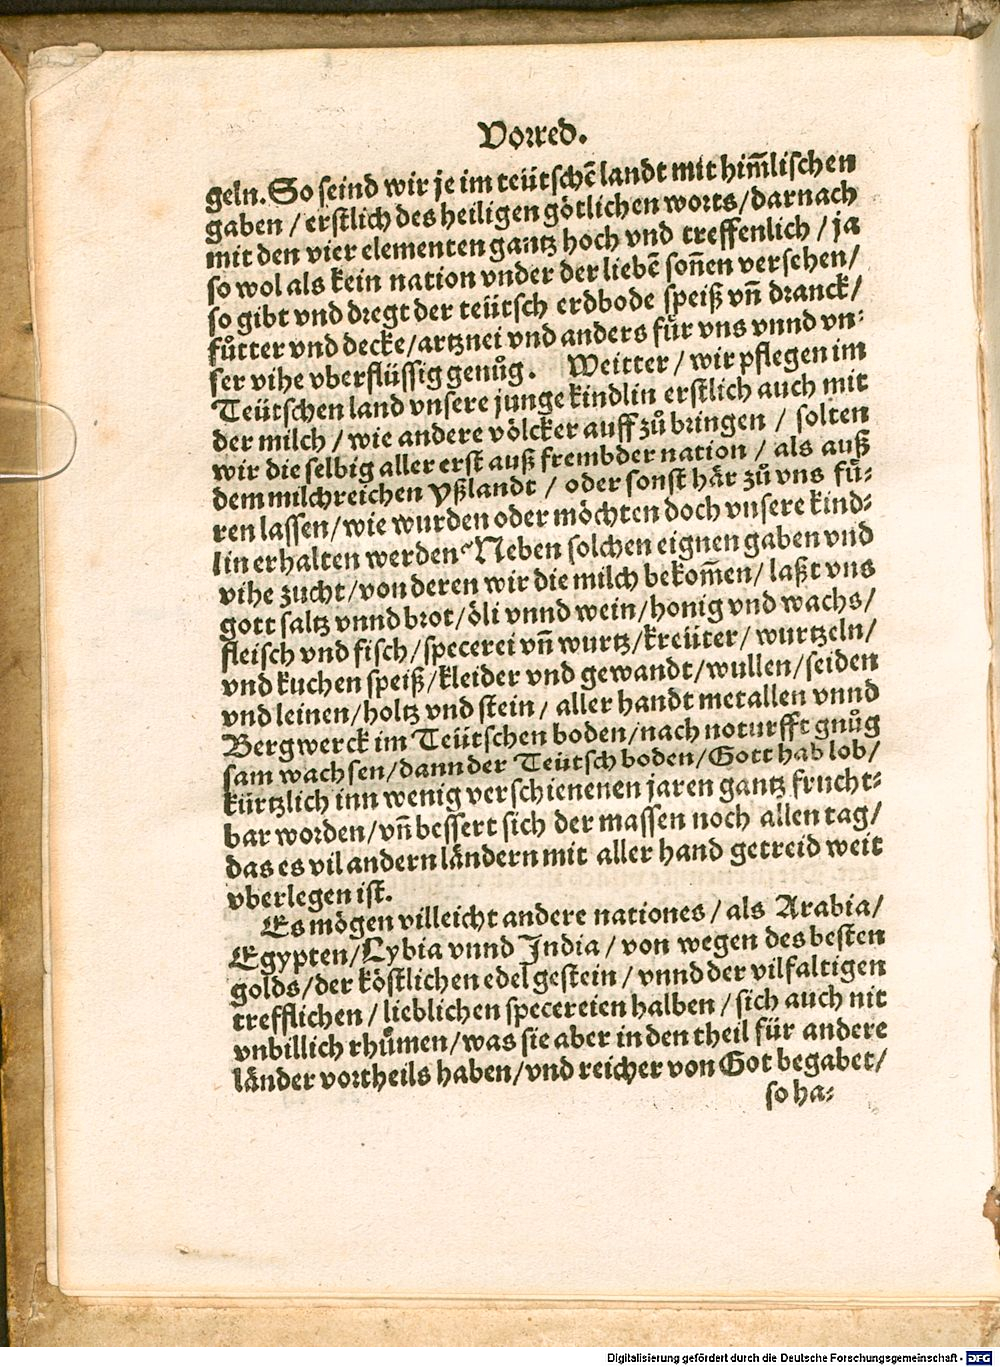 Vorred.
geln. So seind wir je im teütschē landt mit him̄lischen
gaben / erstlich des heiligen götlichen worts / darnach
mit den vier elementen gantz hoch vnd treffenlich / ja
so wol als kein nation vnder der liebē son̄en versehen /
so gibt vnd dregt der teütsch erdbode speiß vn̄ dranck /
fůtter vnd decke / artznei vnd anders für vns vnnd vn⸗
ser vihe vberflüssig genůg. Weitter / wir pflegen im
Teütschen land vnsere junge kindlin erstlich auch mit
der milch / wie andere völcker auff zů bringen / solten
wir die selbig aller erst auß frembder nation / als auß
dem milchreichen Yßlandt / oder sonst här zů vns fü⸗
ren lassen / wie wurden oder möchten doch vnsere kind⸗
lin erhalten werden? Neben solchen eignen gaben vnd
vihe zucht / von deren wir die milch bekom̄en / laßt vns
gott saltz vnnd brot / öli vnnd wein / honig vnd wachs /
fleisch vnd fisch / specerei vn̄ wurtz / kreüter / wurtzeln /
vnd kuchen speiß / kleider vnd gewandt / wullen / seiden
vnd leinen / holtz vnd stein / aller handt metallen vnnd
Bergwerck im Teütschen boden / nach noturfft gnůg
sam wachsen / dann der Teütsch boden / Gott hab lob /
kürtzlich inn wenig verschienenen jaren gantz frucht⸗
bar worden / vn̄ bessert sich der massen noch allen tag /
das es vil andern ländern mit aller hand getreid weit
vberlegen ist.
Es mögen villeicht andere nationes / als Arabia /
Egypten / Lybia vnnd India / von wegen des besten
golds / der köstlichen edel gestein / vnnd der vilfaltigen
trefflichen / lieblichen specereien halben / sich auch nit
vnbillich rhůmen / was sie aber in den theil für andere
länder vortheils haben / vnd reicher von Got begabet /
so ha⸗
Digitalisierung gefördert durch die Deutsche Forschungsgemeinschaft - DFG